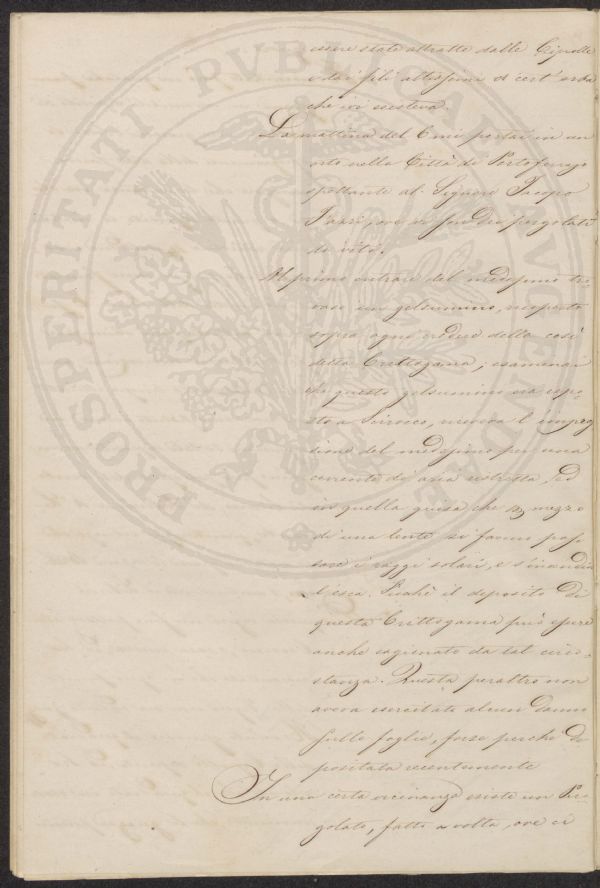 PROSPERITATI PVBLICAE AVGENDAE
essere stato attratto dalle Cipolle
e dai fili altissimi di cert' erba
che ivi esisteva.
La mattina del 6 mi portai in un
orto nella Città di Portoferrajo
spettante al Signore Jacopo
ove vi son due pergolati
di viti.
Al primo entrare del medesimo tro-
vasi un gelsumino,
sopra ogni credere della così
detta Crittogama; esaminai
che questo gelsumino era espo-
sto a Scirocco, riceveva l' impres
sione del medesimo per una
corrente di aria ristretta, ed
in quella guisa che per mezzo
di una lente si fanno pas
sare i raggi solari, e s'incendia
l'esca. Sicchè il deposito di
questa Crittogama può essere
anche cagionato da tal circo-
stanza. Questa peraltro non
aveva esercitato alcun danno
sulle foglie, forse perchè de
positata recentemente
In una certa vicinanza esiste un Per-
golato, fatto a volta, ove ci